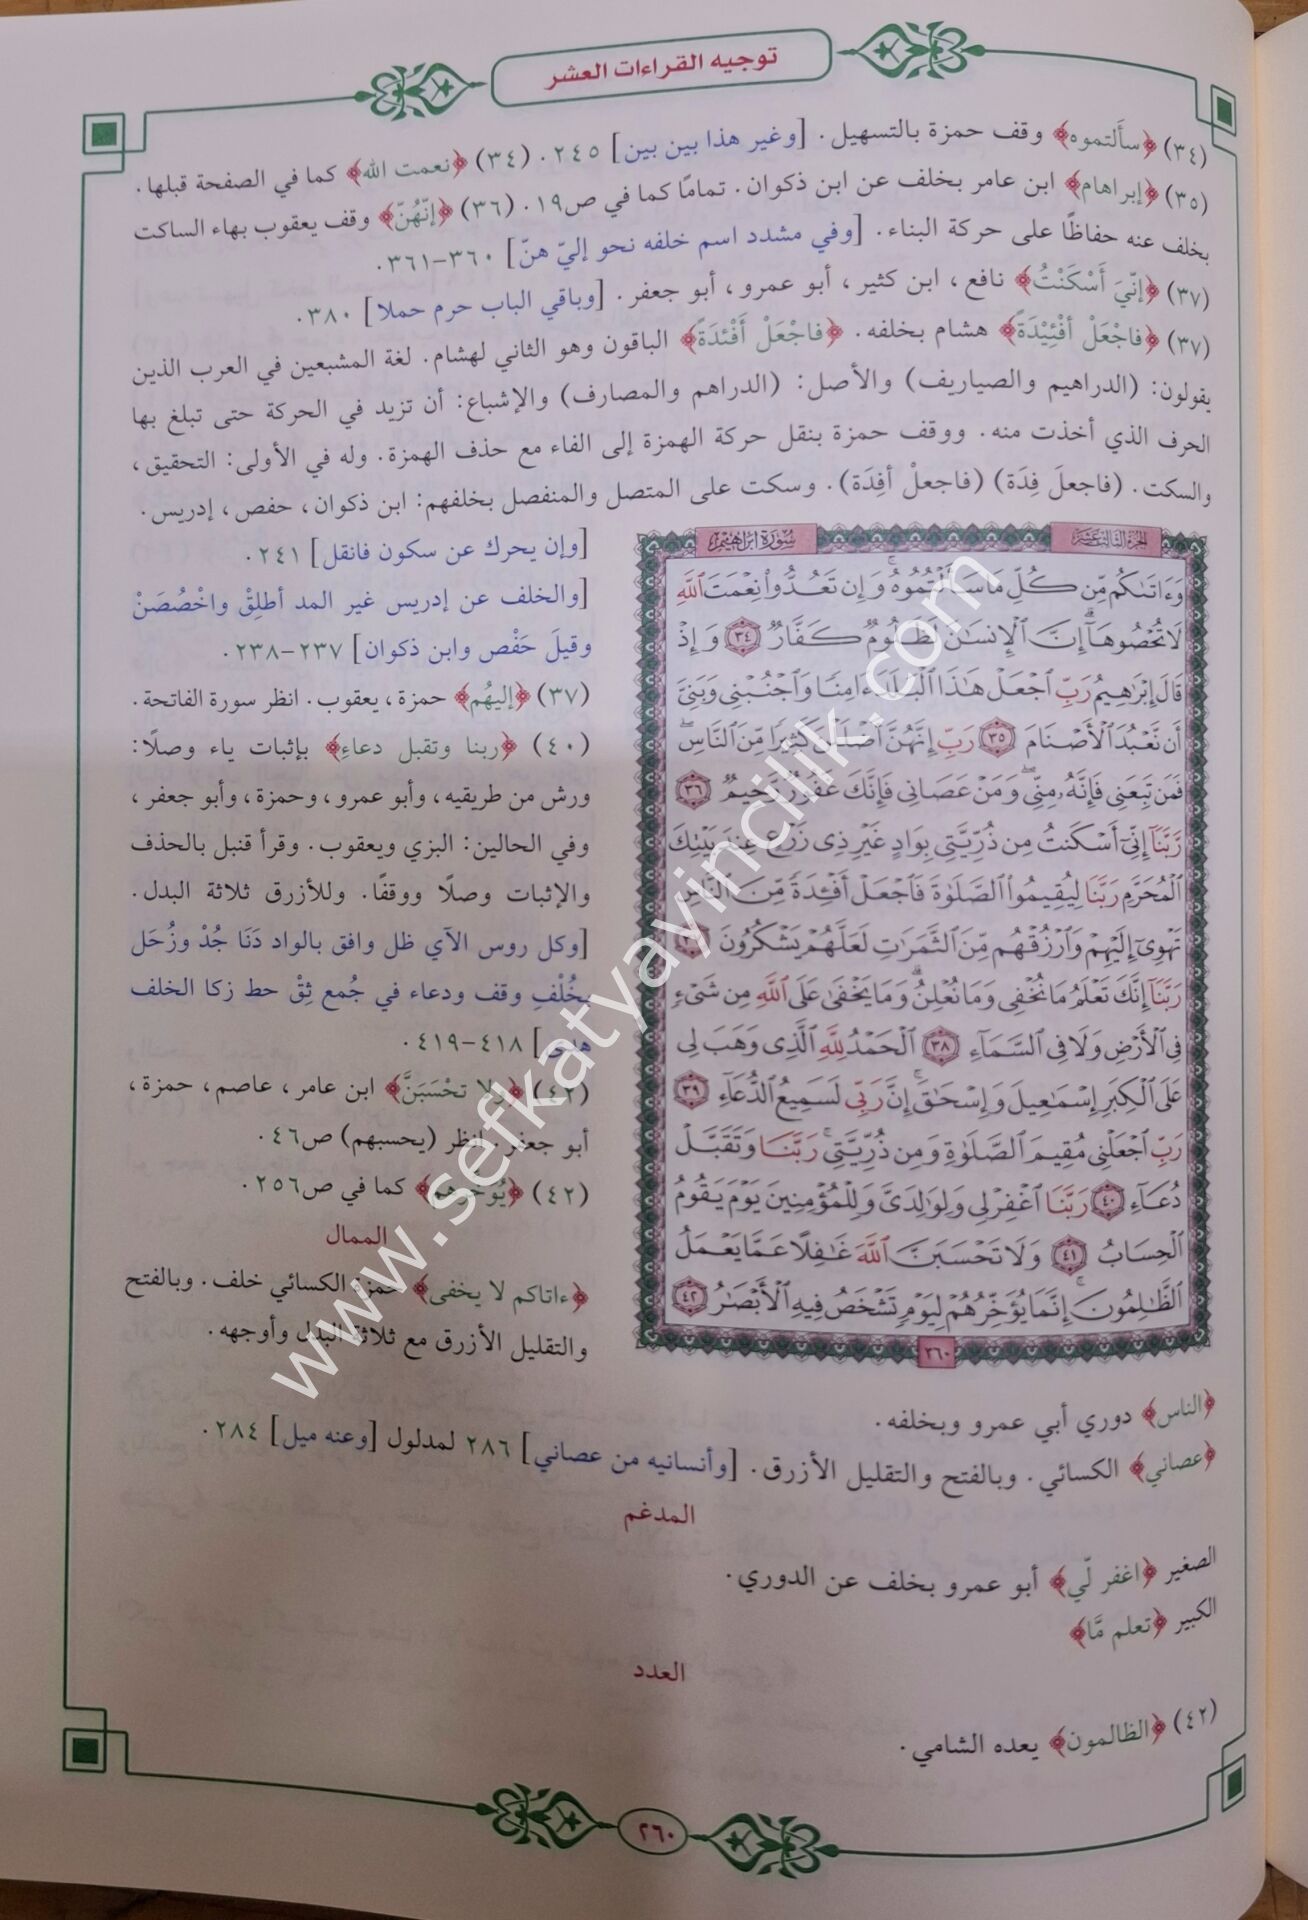 توجيه القراءات العشر
(٣٤) ﴿سألتموه﴾ وقف حمزة بالتسهيل. [وغير هذا بين بين] ٢٤٥. (٣٤) ﴿نعمت الله﴾ كما في الصفحة قبلها.
(٣٥) ﴿إبراهام﴾ ابن عامر بخلف عن ابن ذكوان. تمامًا كما في ص١٩. (٣٦) ﴿إنّهُنّ﴾ وقف يعقوب بهاء الساكت
بخلف عنه حفاظًا على حركة البناء. [وفي مشدد اسم خلفه نحو إليّ هنّ] ٣٦٠-٣٦١.
(٣٧) ﴿إنّيَ أَسْكَنْتُ﴾ نافع، ابن كثير، أبو عمرو، أبو جعفر. [وباقي الباب حرم حملا] ٣٨٠.
(٣٧) ﴿فاجْعَلْ أفْئِيْدَةً﴾ هشام بخلفه. ﴿فاجْعَلْ أَفْئدَةً﴾ الباقون وهو الثاني لهشام. لغة المشبعين في العرب الذين
يقولون: (الدراهيم والصياريف) والأصل: (الدراهم والمصارف) والإشباع: أن تزيد في الحركة حتى تبلغ بها
الحرف الذي أخذت منه. ووقف حمزة بنقل حركة الهمزة إلى الفاء مع حذف الهمزة. وله في الأولى: التحقيق،
والسكت. (فاجعلَ فِدَة) (فاجعلْ أفِدَة). وسكت على المتصل والمنفصل بخلفهم: ابن ذكوان، حفص، إدريس.
[وإن يحرك عن سكون فانقل] ٢٤١.
[والخلف عن إدريس غير المد أطلِقْ واخْصُصَنْ
وقيلَ حَفْص وابن ذكوان] ٢٣٧-٢٣٨.
(٣٧) ﴿إليهُم﴾ حمزة، يعقوب. انظر سورة الفاتحة.
(٤٠) ﴿ربنا وتقبل دعاءِ﴾ بإثبات ياء وصلًا:
ورش من طريقيه، وأبو عمرو، وحمزة، وأبو جعفر،
وفي الحالين: البزي ويعقوب. وقرأ قنبل بالحذف
والإثبات وصلًا ووقفًا. وللأزرق ثلاثة البدل.
[وكل روس الآي ظل وافق بالواد دَنَا جُدْ وزُحَل
بخُلْفِ وقف ودعاء في جُمع ثِقْ حط زكا الخلف
هدى] ٤١٨-٤١٩.
(٤٢) ﴿ولا تحْسَبَنَّ﴾ ابن عامر، عاصم، حمزة،
أبو جعفر. انظر (يحسبهم) ص٤٦.
(٤٢) ﴿يُوَخِّرهم﴾ كما في ص٢٥٦.
الممال
﴿ءاتاكم لا يخفى﴾ حمزة الكسائي خلف. وبالفتح
والتقليل الأزرق مع ثلاثة البدل وأوجهه.
الجزء الثالث عشر
سورة ابراهيم
وَءَاتَىٰكُم مِّن كُلِّ مَا سَأَلْتُمُوهُ ۚ وَإِن تَعُدُّوا۟ نِعْمَتَ ٱللَّهِ
لَا تُحْصُوهَآ ۗ إِنَّ ٱلْإِنسَٰنَ لَظَلُومٌ كَفَّارٌ ٣٤ وَإِذْ
قَالَ إِبْرَٰهِيمُ رَبِّ ٱجْعَلْ هَٰذَا ٱلْبَلَدَ ءَامِنًا وَٱجْنُبْنِى وَبَنِىَّ
أَن نَّعْبُدَ ٱلْأَصْنَامَ ٣٥ رَبِّ إِنَّهُنَّ أَضْلَلْنَ كَثِيرًا مِّنَ ٱلنَّاسِ ۖ
فَمَن تَبِعَنِى فَإِنَّهُۥ مِنِّى ۖ وَمَنْ عَصَانِى فَإِنَّكَ غَفُورٌ رَّحِيمٌ ٣٦
رَّبَّنَآ إِنِّىٓ أَسْكَنتُ مِن ذُرِّيَّتِى بِوَادٍ غَيْرِ ذِى زَرْعٍ عِندَ بَيْتِكَ
ٱلْمُحَرَّمِ رَبَّنَا لِيُقِيمُوا۟ ٱلصَّلَوٰةَ فَٱجْعَلْ أَفْـِٔدَةً مِّنَ ٱلنَّاسِ
تَهْوِىٓ إِلَيْهِمْ وَٱرْزُقْهُم مِّنَ ٱلثَّمَرَٰتِ لَعَلَّهُمْ يَشْكُرُونَ ٣٧
رَبَّنَآ إِنَّكَ تَعْلَمُ مَا نُخْفِى وَمَا نُعْلِنُ ۗ وَمَا يَخْفَىٰ عَلَى ٱللَّهِ مِن شَىْءٍ
فِى ٱلْأَرْضِ وَلَا فِى ٱلسَّمَآءِ ٣٨ ٱلْحَمْدُ لِلَّهِ ٱلَّذِى وَهَبَ لِى
عَلَى ٱلْكِبَرِ إِسْمَٰعِيلَ وَإِسْحَٰقَ ۚ إِنَّ رَبِّى لَسَمِيعُ ٱلدُّعَآءِ ٣٩
رَبِّ ٱجْعَلْنِى مُقِيمَ ٱلصَّلَوٰةِ وَمِن ذُرِّيَّتِى ۚ رَبَّنَا وَتَقَبَّلْ
دُعَآءِ ٤٠ رَبَّنَا ٱغْفِرْ لِى وَلِوَٰلِدَىَّ وَلِلْمُؤْمِنِينَ يَوْمَ يَقُومُ
ٱلْحِسَابُ ٤١ وَلَا تَحْسَبَنَّ ٱللَّهَ غَٰفِلًا عَمَّا يَعْمَلُ
ٱلظَّٰلِمُونَ ۚ إِنَّمَا يُؤَخِّرُهُمْ لِيَوْمٍ تَشْخَصُ فِيهِ ٱلْأَبْصَٰرُ ٤٢
٢٦٠
﴿الناس﴾ دوري أبي عمرو وبخلفه.
﴿عصاني﴾ الكسائي. وبالفتح والتقليل الأزرق. [وأنسانيه من عصاني] ٢٨٦ لمدلول [وعنه ميل] ٢٨٤.
المدغم
الصغير ﴿اغفر لّي﴾ أبو عمرو بخلف عن الدوري.
الكبير ﴿تعلم مَّا﴾
العدد
(٤٢) ﴿الظالمون﴾ يعده الشامي.
٢٦٠
www.sefkatyayincilik.com